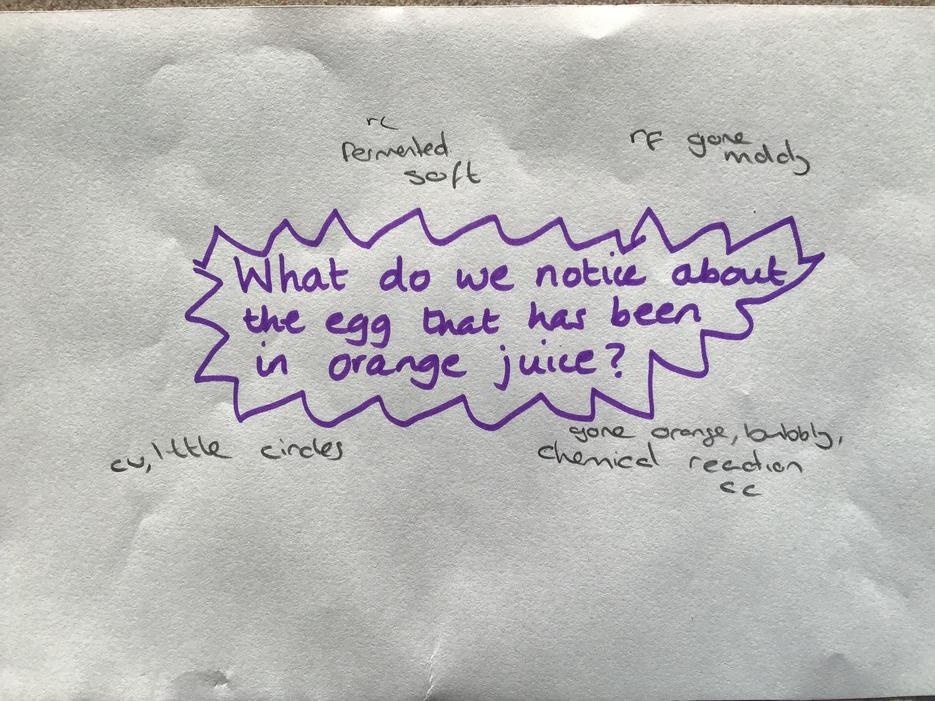 rc
fermented
soft
rf gone
moldy
What do we notice about
the egg that has been
in orange juice?
cv, little circles
gone orange, bubbly,
chemical reaction
cc